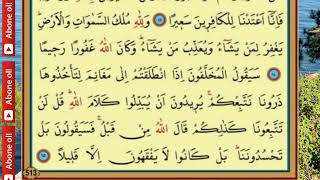 فَاِنَّٓا اَعْتَدْنَا لِلْكَافِر۪ينَ سَع۪يرًا ۝ وَلِلّٰهِ مُلْكُ السَّمٰوَاتِ وَالْاَرْضِۜ
يَغْفِرُ لِمَنْ يَشَٓاءُ وَيُعَذِّبُ مَنْ يَشَٓاءُۜ وَكَانَ اللّٰهُ غَفُورًا رَح۪يمًا
۝ سَيَقُولُ الْمُخَلَّفُونَ اِذَا انْطَلَقْتُمْ اِلٰى مَغَانِمَ لِتَأْخُذُوهَا
ذَرُونَا نَتَّبِعْكُمْۚ يُر۪يدُونَ اَنْ يُبَدِّلُوا كَلَامَ اللّٰهِۜ قُلْ لَنْ
تَتَّبِعُونَا كَذٰلِكُمْ قَالَ اللّٰهُ مِنْ قَبْلُۚ فَسَيَقُولُونَ بَلْ
تَحْسُدُونَنَاۜ بَلْ كَانُوا لَا يَفْقَهُونَ اِلَّا قَل۪يلًا ۝
513
Abone ol!
Abone ol!
Abone ol!
Abone ol!
Abone ol!
Abone ol!